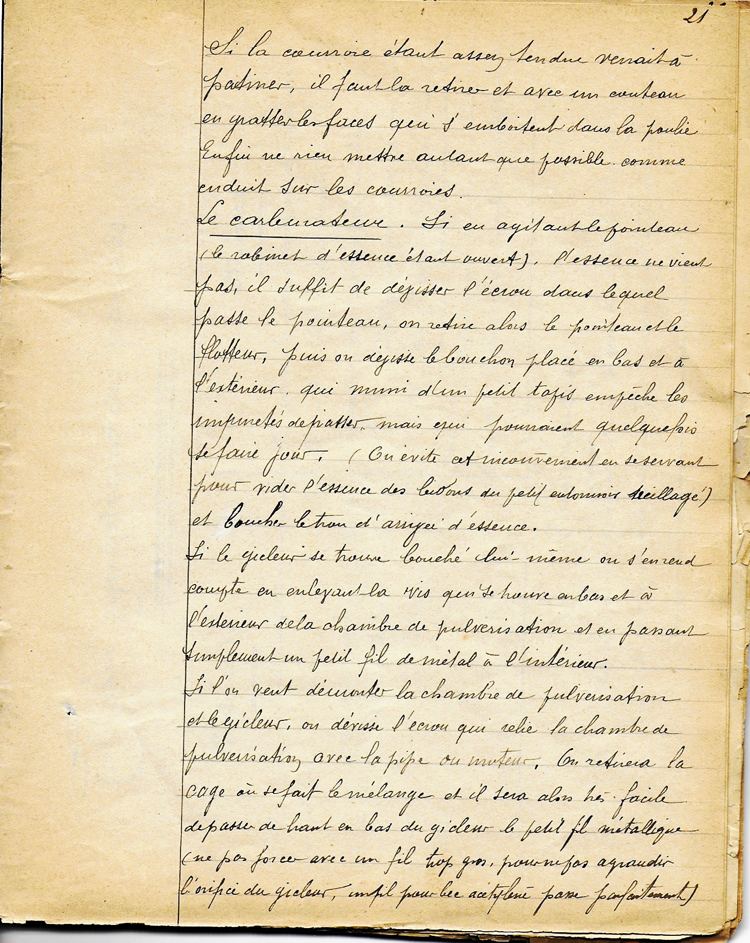 21
Si la courroie étant assez tendue venait à
patiner, il faut la retirer et avec un couteau
en gratter les faces qui s'emboitent dans la poulie
Enfin ne rien mettre autant que possible comme
enduit sur les courroies.
Le carburateur. Si en agitant le pointeau
(le robinet d'essence étant ouvert). l'essence ne vient
pas, il suffit de dévisser l'écrou dans lequel
passe le pointeau, on retire alors le pointeau et le
flotteur, puis on dévisse le bouchon placé en bas et à
l'extérieur. qui muni d'un petit tapis empêche les
impuretés de passer, mais qui pourraient quelquefois
se faire jour. (On évite cet inconvenient en se servant
pour vider l'essence des bidons du petit entonnoir treillagé)
et boucher le trou d'arrivée d'essence.
Si le gicleur se trouve bouché lui-même on s'en rend
compte en enlevant la vis qui se trouve en bas et à
l'exterieur de la chambre de pulverisation et en passant
simplement un petit fil de métal à l'intérieur.
Si l'on veut démonter la chambre de pulverisation
et le gicleur, on dévisse l'écrou qui relie la chambre de
pulverisation avec la pipe du moteur. On retirera la
cage où se fait le mélange et il sera alors très facile
de passer de haut en bas du gicleur le petit fil métallique
(ne pas forcer avec un fil trop gros, pour ne pas agrandir
l'orifice du gicleur, un fil pour bec acetylène passe parfaitement)